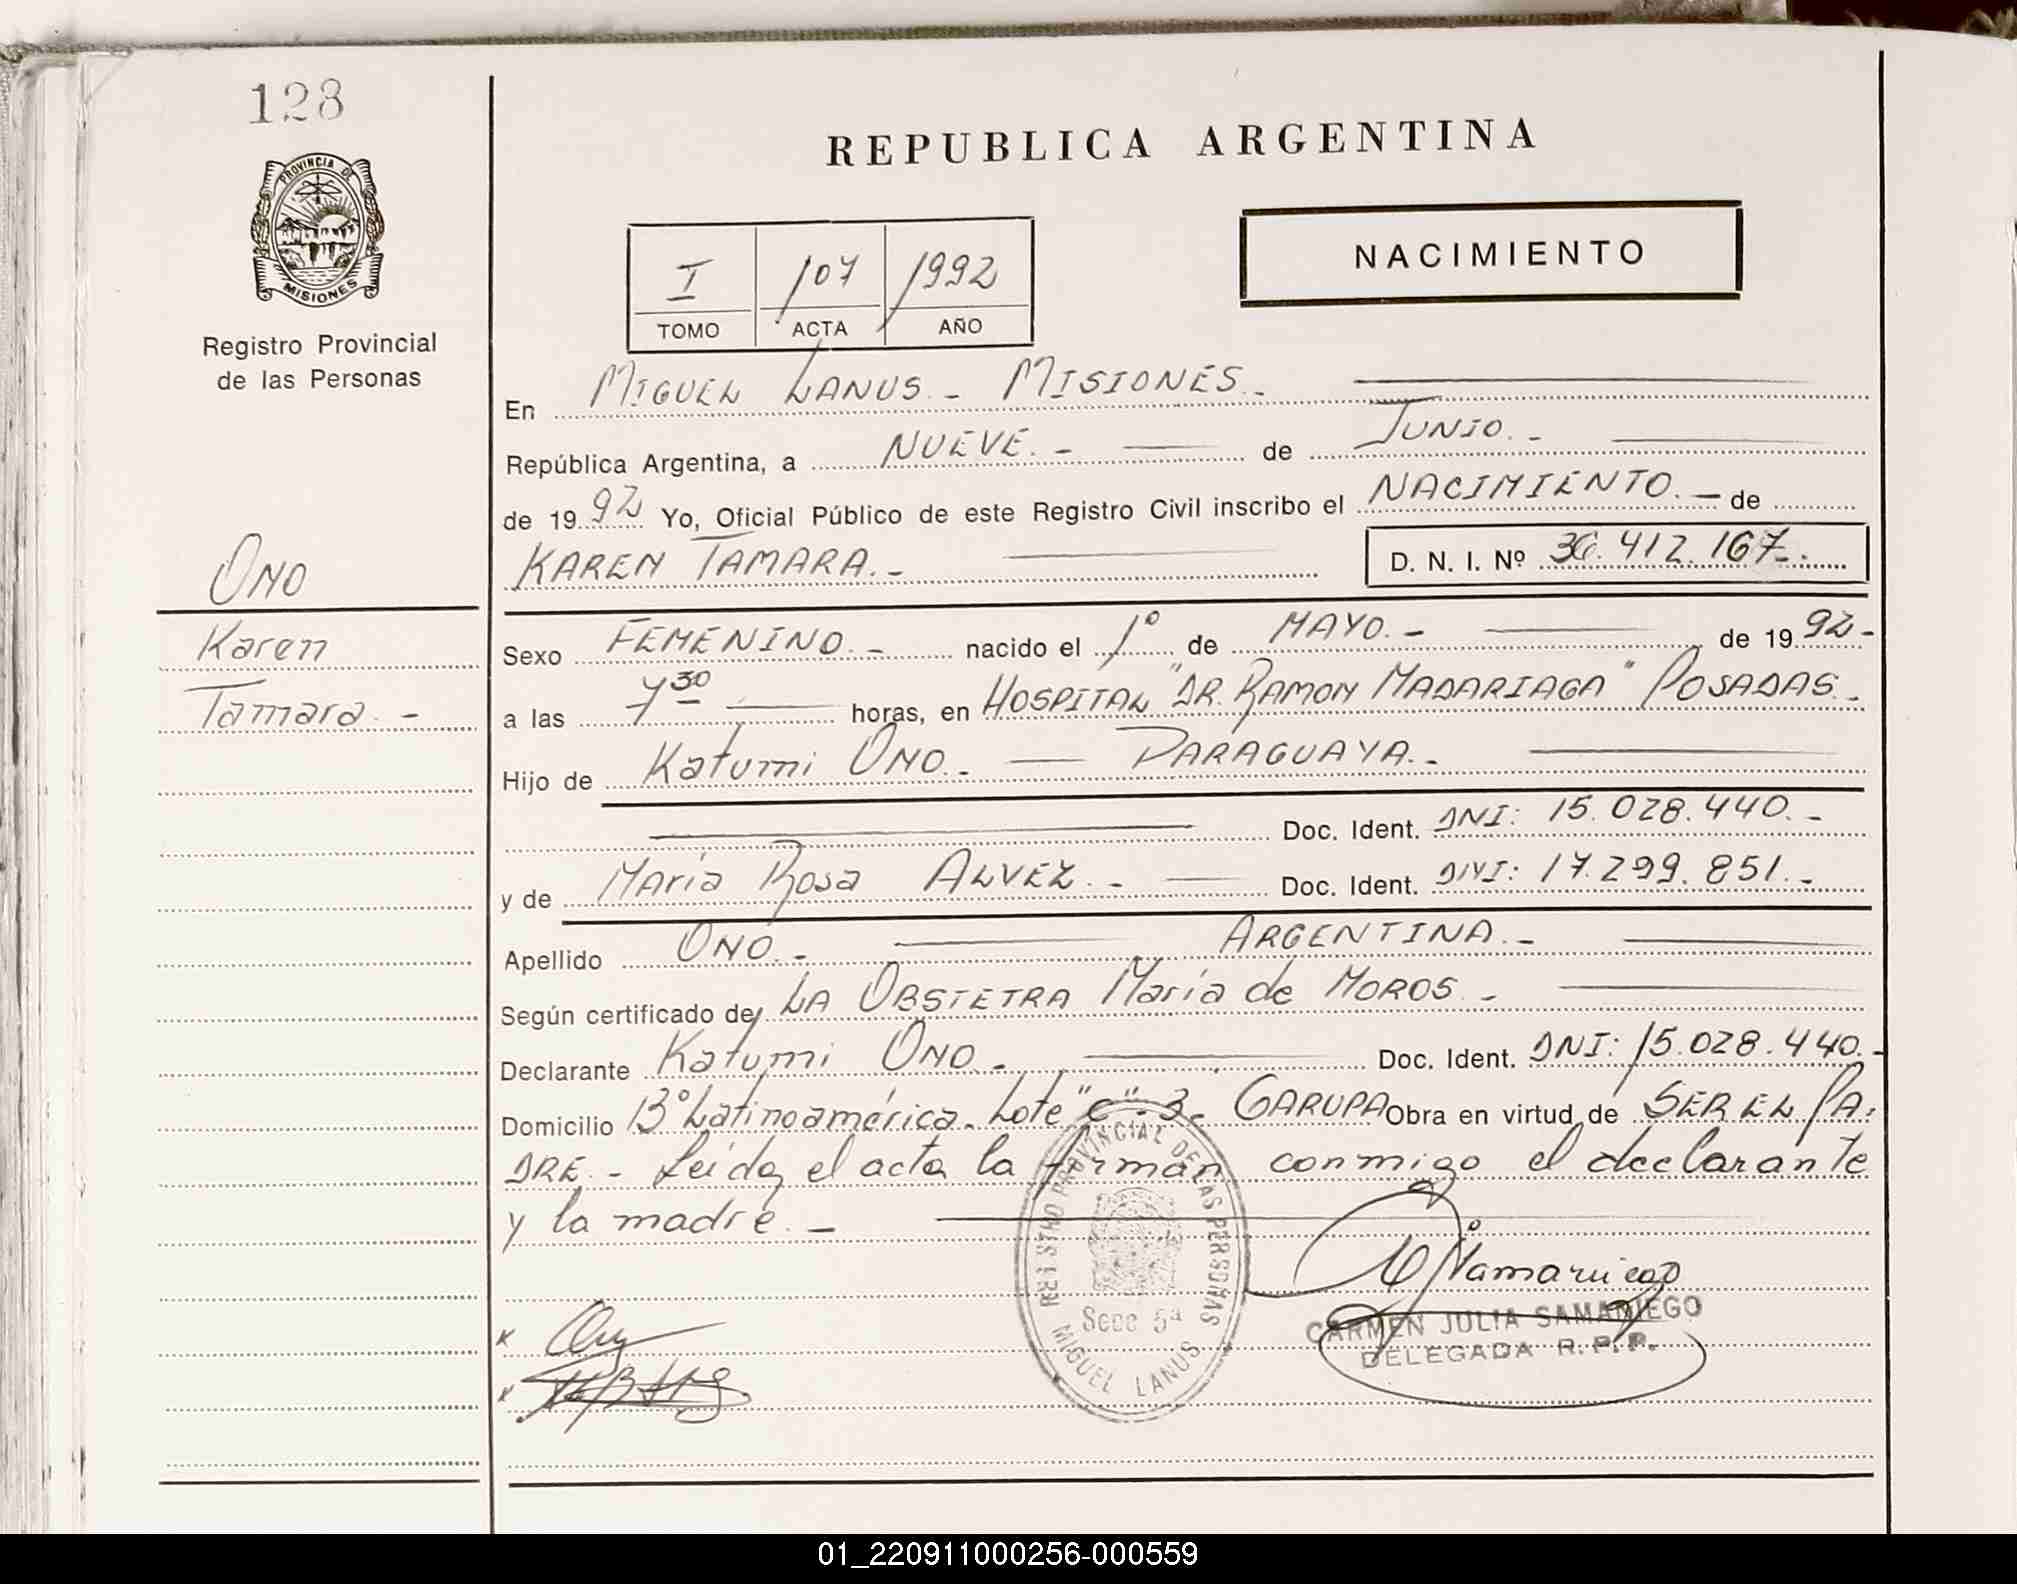 128
PROVINCIA DE
MISIONES
Registro Provincial
de las Personas
REPUBLICA ARGENTINA
NACIMIENTO
I 107 1992
TOMO ACTA AÑO
En MIGUEL LANUS.- MISIONES.-
República Argentina, a NUEVE.- de JUNIO.-
de 1992 Yo, Oficial Público de este Registro Civil inscribo el NACIMIENTO.- de
KAREN TAMARA.- D. N. I. Nº 36.412.167.
ONO
Karen
Tamara.-
Sexo FEMENINO.- nacido el 1º de MAYO.- de 1992-
a las 7 30 horas, en HOSPITAL "DR. RAMON MADARIAGA" POSADAS.-
Hijo de Katumi ONO.- PARAGUAYA.-
Doc. Ident. DNI: 15.028.440.-
y de María Rosa ALVEZ.- Doc. Ident. DNI: 17.299.851.-
Apellido ONO.- ARGENTINA.-
Según certificado de LA OBSTETRA María de MOROS.-
Declarante Katumi ONO.- Doc. Ident. DNI: 15.028.440.-
Domicilio Bº Latinoamérica. Lote "C"-3- GARUPA Obra en virtud de SER EL PA-
DRE.- Leída el acta la firman conmigo el declarante
y la madre.-
REGISTRO PROVINCIAL DE LAS PERSONAS
Secc 5ª
MIGUEL LANUS
CARMEN JULIA SAMANIEGO
DELEGADA R.P.P.
01_220911000256-000559